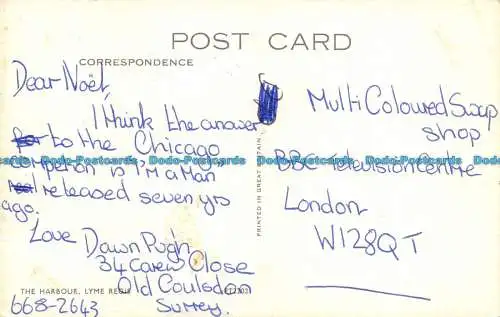 POST CARD
CORRESPONDENCE
Dear Noel,
I think the answer
to the Chicago
compertion is I'm a Man
released seven yrs
ago.
Love Dawn Pugh
34 Carew Close
Old Coulsdon
Surrey.
668-2643
Multi Coloured Swap
shop
BBC Television Centre
London
W128QT
PRINTED IN GREAT BRITAIN
THE HARBOUR, LYME REGIS
Dodo-Postcards Dodo-Postcards Dodo-Postcards Dodo-Postcards